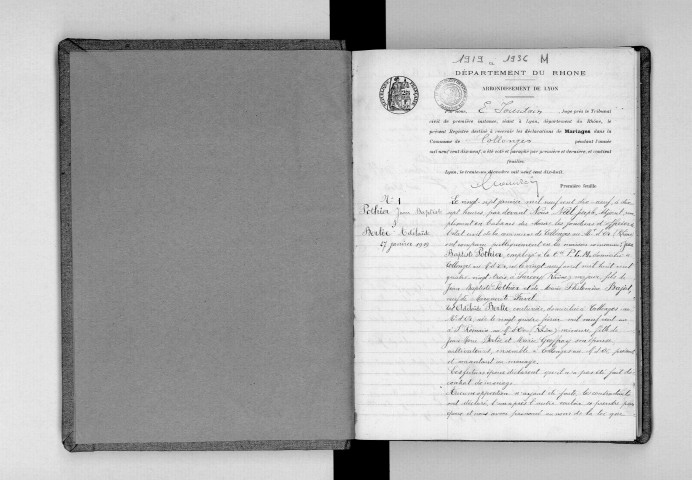 1919 à 1936 M
DÉPARTEMENT DU RHONE
ARRONDISSEMENT DE LYON
Juge près le Tribunal
civil de première instance, séant à Lyon, département du Rhône, le
présent Registre destiné à recevoir les déclarations de Mariages dans la
Commune de Collonges pendant l'année
mil neuf cent dix-neuf, a été coté et paraphé par première et dernière, et contient
feuillets.
Lyon, le trente-un décembre mil neuf cent dix-huit.
Première feuille
N° 1
Pothier Jean Baptiste
&
Berlie Adélaïde
27 janvier 1919
Le vingt sept janvier mil neuf cent dix-neuf à dix
sept heures par devant Nous
l'état civil de la commune de Collonges au Mt d'Or (Rhône)
ont comparu publiquement en la maison commune: Jean
Baptiste Pothier, employé à la Cie P.L.M. domicilié à
Collonges au Mt d'Or, né le vingt neuf avril mil huit cent
quatre vingt trois à (Rhône) majeur, fils de
Jean Baptiste Pothier et de Marie Philomène
Et Adélaïde Berlie, couturière, domiciliée à Collonges au
Mt d'Or, née le vingt quatre février mil neuf cent un
à St Romain au Mt d'Or (Rhône) mineure, fille de
Jean Marie Berlie et Marie Geoffray son épouse
cultivateurs, ensemble à Collonges au Mt d'Or présents
et consentant au mariage.
Les futurs époux déclarent qu'il n'a pas été fait de
contrat de mariage.
Aucune opposition n'ayant été faite, les contractants
ont déclaré, l'un après l'autre vouloir se prendre pour
époux et nous avons prononcé au nom de la loi que